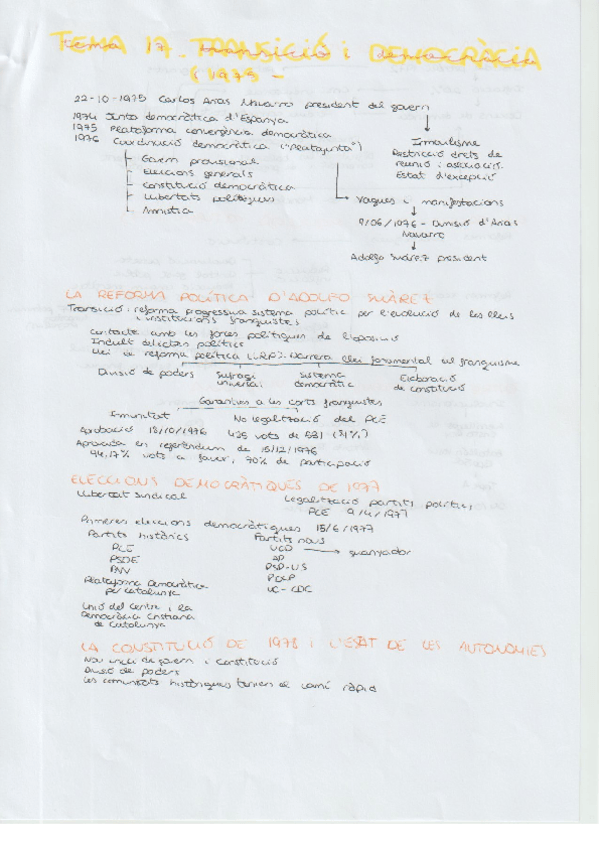 TEMA 17. TRANSICIÓ i DEMOCRÀCIA
(1975 -
22-10-1975 Carlos Arias Navarro president del govern
1974 Junta democràtica d'Espanya
1975 Plataforma convergència democràtica
1976 Coordinació democràtica ("Platajunta")
Govern provisional
Eleccions generals
Constitució democràtica
Llibertats polítiques
Amnistia
Immobilisme
Restricció drets de
reunió i associació.
Estat d'excepció
Vagues i manifestacions
9/06/1976 - Dimisió d'Arias
Navarro
Adolfo Suárez president
LA REFORMA POLÍTICA D'ADOLFO SUÁREZ
Transició: reforma progressiva sistema polític per l'evolució de les lleis
i institucions franquistes
Contacte amb les forces polítiques de l'oposició
Indult delictes polítics
Llei de reforma política (LRP): Darrera llei fonamental del franquisme
Divisió de poders
Sufragi
universal
Sistema
democràtic
Elaboració
de constitució
Garanties a les corts franquistes
Immunitat
No legalització del PCE
Aprobació 18/10/1976 425 vots de 531 (81%)
Aprovada en referèndum de 15/12/1976
94,17% vots a favor, 70% de participació
ELECCIONS DEMOCRÀTIQUES DE 1977
Llibertat sindical
Legalització partits polítics
PCE 9/4/1977
Primeres eleccions democràtiques 15/6/1977
Partits històrics
PCE
PSOE
PNV
Plataforma Democràtica
per Catalunya
Unió del Centre i la
Democràcia Cristiana
de Catalunya
Partits nous
UCD → guanyador
AP
PSP-US
PDLP
UC-CDC
LA CONSTITUCIÓ DE 1978 I L'ESTAT DE LES AUTONOMIES
Nou de govern i constitució
Divisió de poders
Les comunitats històriques tenien el camí ràpid